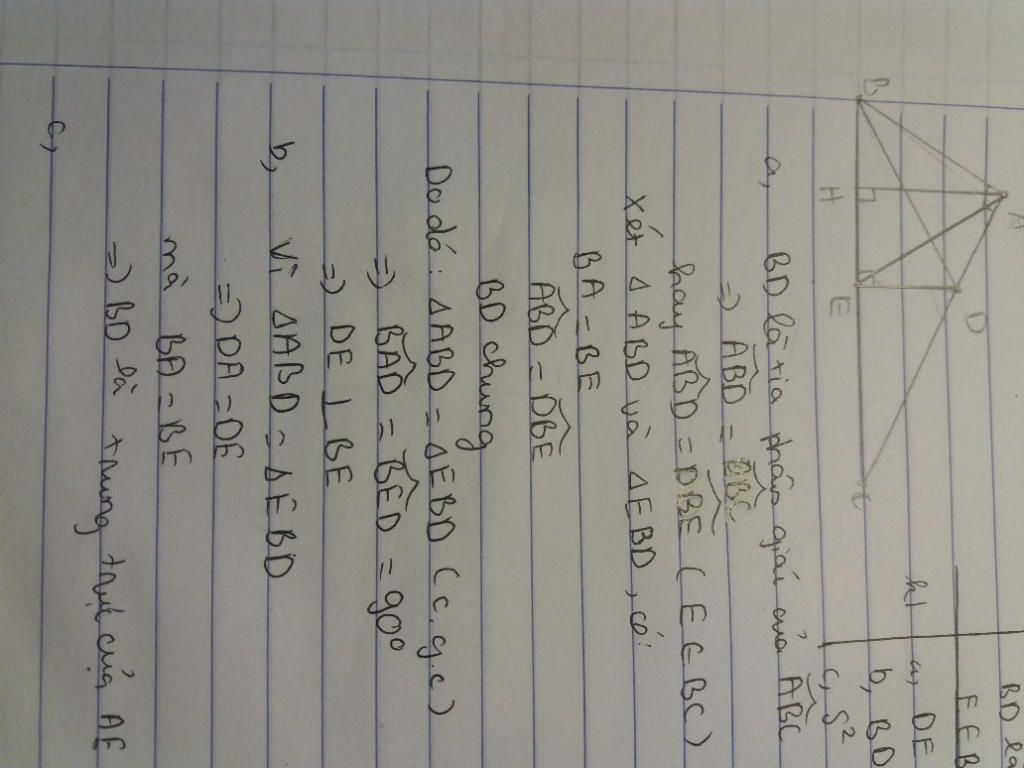 BD là
E ∈ B
kl a, DE
b, BD
c, S²
A
B
H
E
D
C
a, BD là tia phân giác của ABC
=) ABD = DBC
hay ABD = DBE ( E ∈ BC )
xét Δ ABD và Δ EBD, có:
BA = BE
ABD = DBE
BD chung
Do dó: Δ ABD = Δ EBD ( c.g.c )
=) BAD = BED = 90°
=) DE ⊥ BE
b, Vì Δ ABD = Δ EBD
=) DA = DE
mà BA = BE
=) BD là trung trực của AE
c,